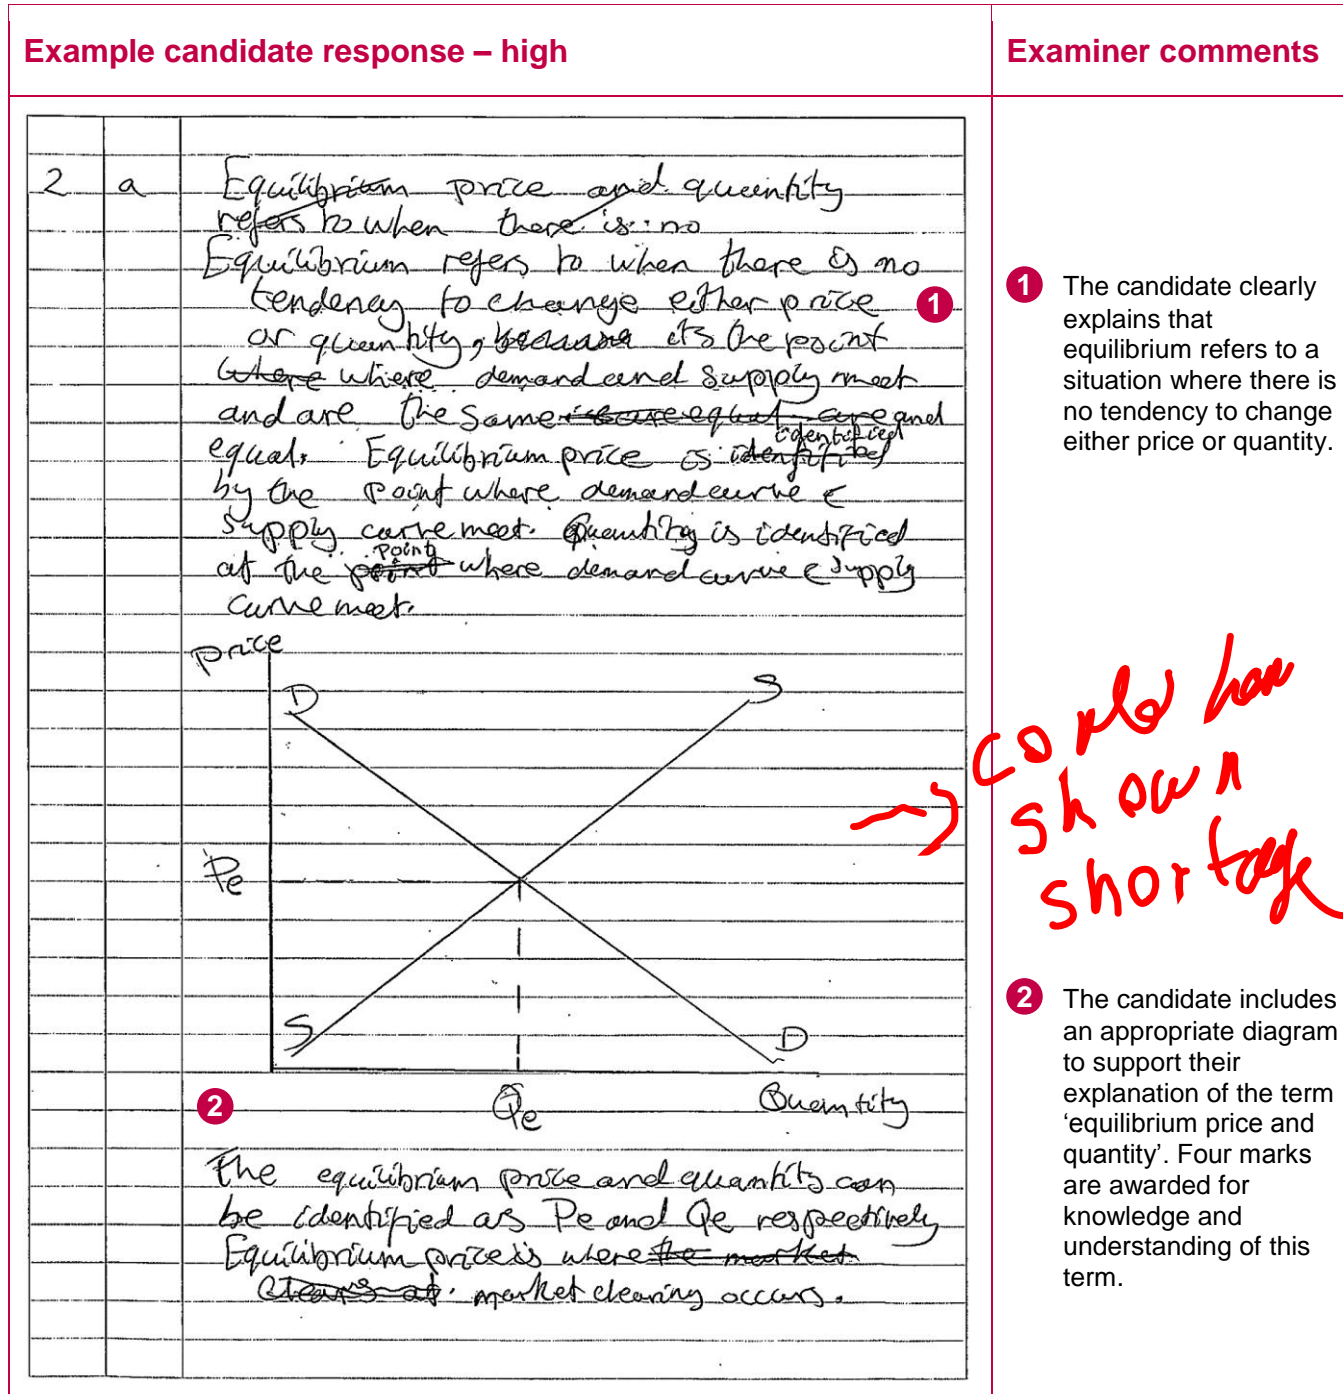 Example candidate response – high
Examiner comments
2 a Equilibrium price and quantity
refers to when there is no
Equilibrium refers to when there is no
tendency to change either price 1
or quantity, because its the point
where where demand and supply meet
and are the same and
equal. Equilibrium price is identified identified
by the point where demand curve &
supply curve meet. Quantity is identified
at the point point where demand curve & supply
curve meet.
Price
D
S
Pe
S
D
2
Qe
Quantity
The equilibrium price and quantity can
be identified as Pe and Qe respectively
Equilibrium price is where the market
clears at. market clearing occurs.
1 The candidate clearly
explains that
equilibrium refers to a
situation where there is
no tendency to change
either price or quantity.
could have
shown
shortage
2 The candidate includes
an appropriate diagram
to support their
explanation of the term
‘equilibrium price and
quantity’. Four marks
are awarded for
knowledge and
understanding of this
term.